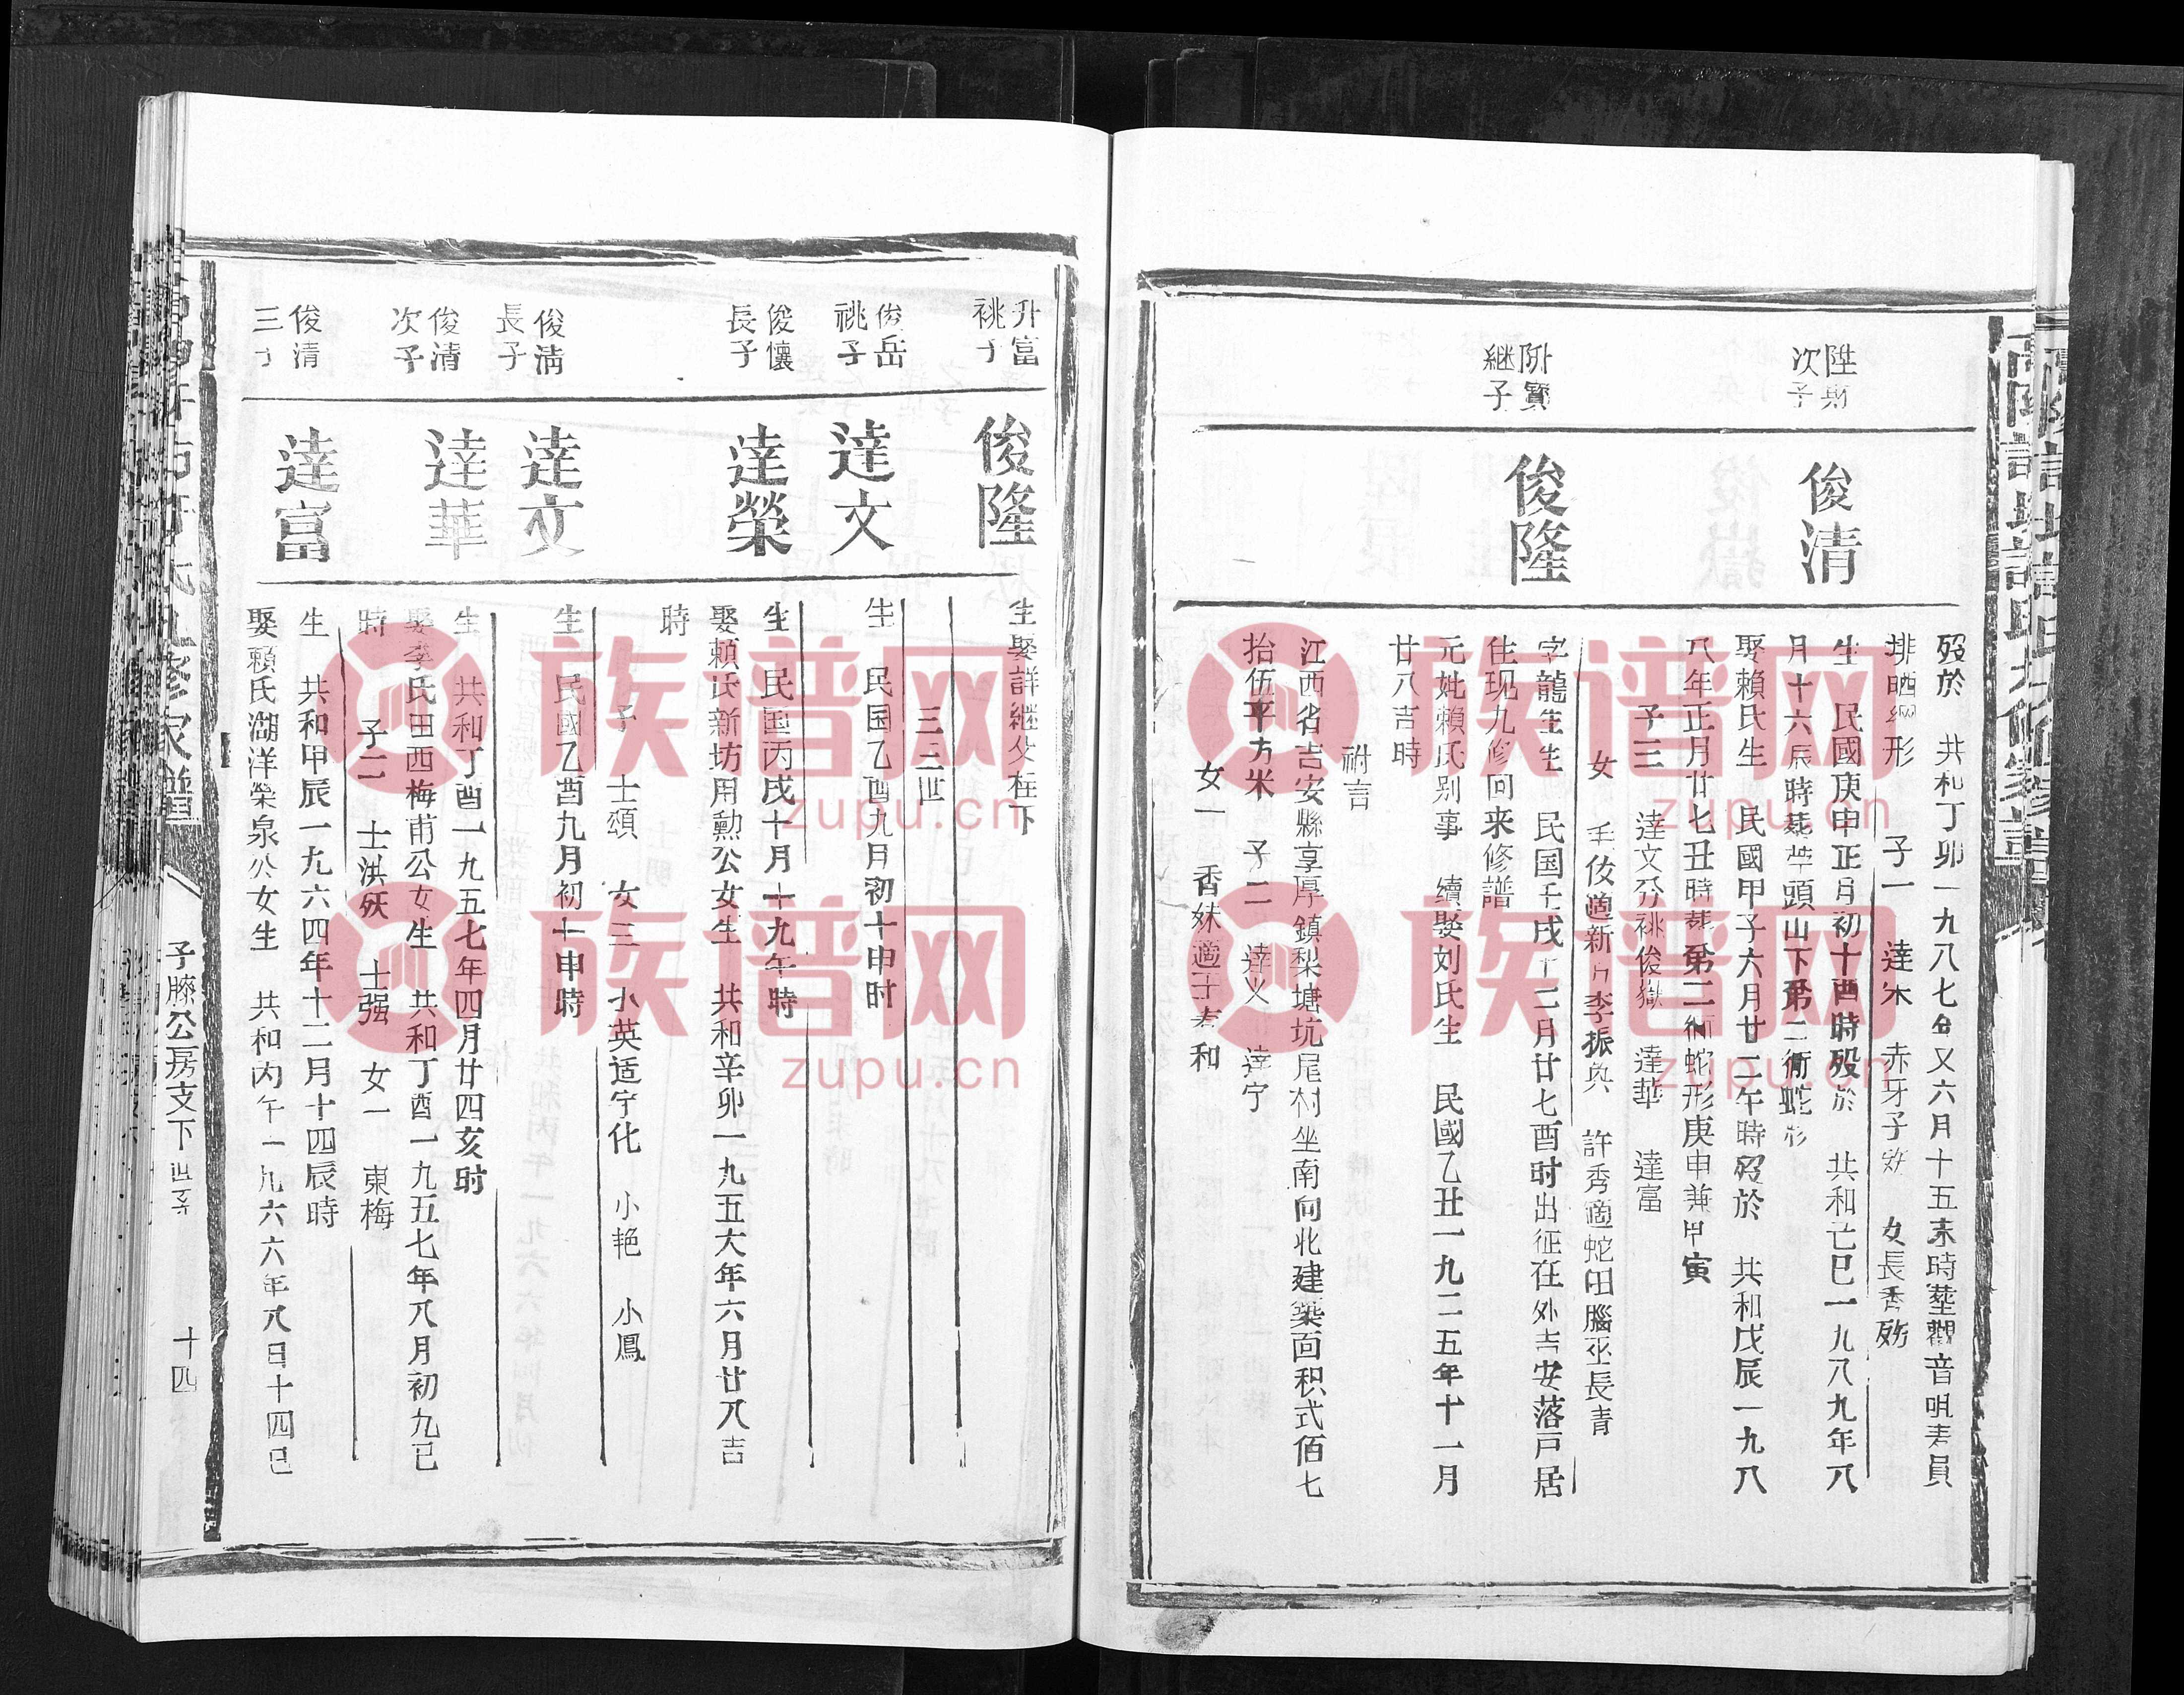 歿於 共和丁卯一九八七年又六月十五未時塟觀音咀
排晒網形 子一 達 赤牙子 女長秀
陞財
次子
俊清
生 民國庚申正月初十酉時歿於 共和己巳一九八九年八
月十六辰時塟 頭山下第二衕蛇形
娶賴氏生 民國甲子六月廿二午時歿於 共和戊辰一九八
八年正月廿七丑時塟第二衕蛇形庚申兼甲寅
子三 達文分祧俊嶽 達華 達富
女 適新 李振 許秀適蛇田腦巫長青
陞寶
継子
俊隆
字龍生生 民国壬戌十二月廿七酉时出征在外吉安落戸居
住现九修回来修譜
元妣賴氏别事 續娶刘氏生 民國乙丑一九二五年十一月
廿八吉時
附言
江西省吉安縣享厚鎮梨塘坑尾村坐南向北建築面积弍佰七
拾伍平方米 子二 達 達宁
女一 香妹適 和
升富
祧子
俊隆
生娶詳継父柱下
三三世
俊岳
祧子
達文
生 民国乙酉九月初十申时
俊懷
長子
達榮
生 民国丙戌十月十九午時
娶賴氏新坊用勳公女生 共和辛卯一九五六年六月廿八吉
時
子 士頌 女三 小英适宁化 小艳 小鳳
俊清
長子
達文
生 民國乙酉九月初十申時
俊清
次子
達華
生 共和丁酉一九五七年四月廿四亥时
娶李氏田西梅甫公女生 共和丁酉一九五七年八月初九巳
時 子二 士洪 士强 女一 東梅
俊清
三子
達富
生 共和甲辰一九六四年十二月十四辰時
娶賴氏湖洋榮泉公女生 共和丙午一九六六年八日十四巳
子勝公房支下世系 十四
族谱网
zupu.cn
族谱网
zupu.cn
族谱网
zupu.cn
族谱网
zupu.cn